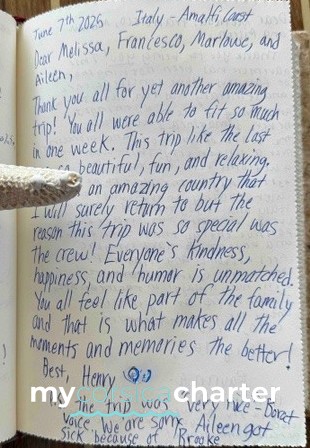 June 7th 2025 Italy - Amalfi Coast
Dear Melissa, Francesco, Marlowe, and
Aileen,
Thank you all for yet another amazing
trip! You all were able to fit so much
in one week. This trip like the last
so beautiful, fun, and relaxing.
an amazing country that
I will surely return to but the
reason this trip was so special was
the crew! Everyone's kindness,
happiness, and humor is unmatched.
You all feel like part of the family
and that is what makes all the
moments and memories the better!
Best, Henry
my charter
The trip was very nice - Dorset
voice. We are sorry Aileen got
sick because of Brooke